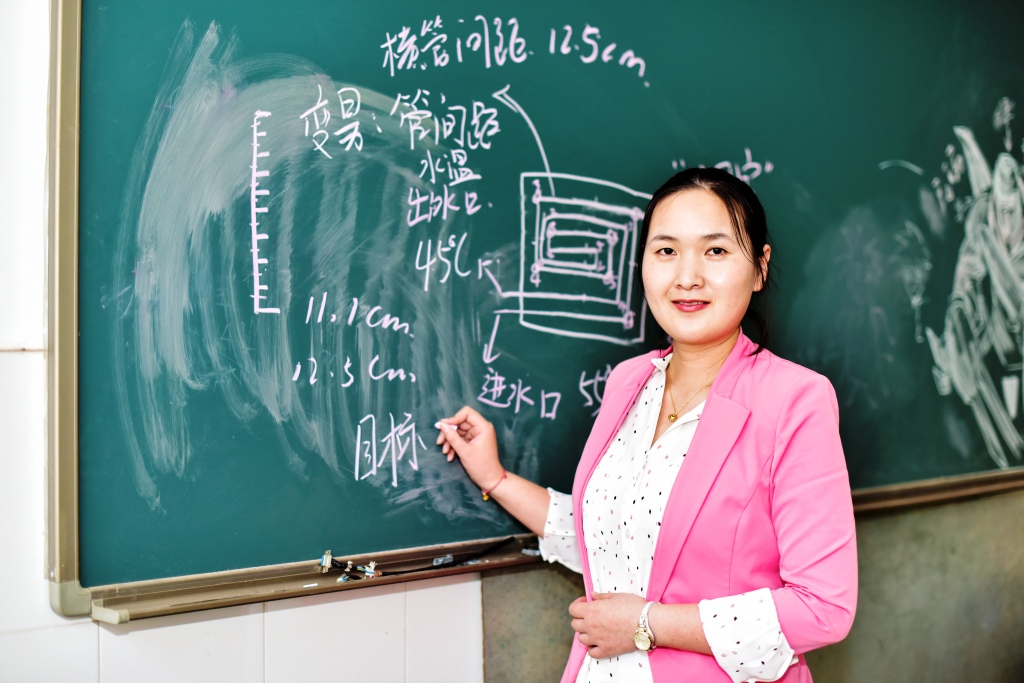 横管间距 12.5cm
变易: 管间距
水温
出水口
45℃
11.1cm
12.5cm
进水口 55
目标